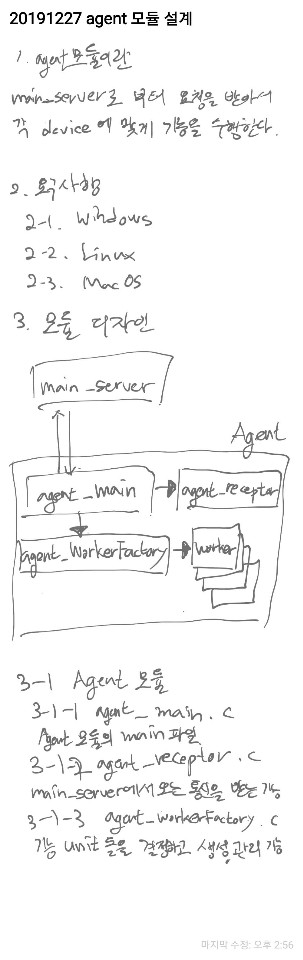 20191227 agent 모듈 설계
1. agent 모듈이란
main_server로 부터 요청을 받아서
각 device에 맞게 기능을 수행한다.
2. 요구사항
2-1. Windows
2-2. Linux
2-3. Mac OS
3. 모듈 디자인
main_server
Agent
agent_main
agent_receptor
agent_WorkerFactory
Worker
3-1 Agent 모듈
3-1-1 agent_main.c
Agent 모듈의 main 파일
3-1-2 agent_receptor.c
main_server에서 오는 통신을 받는 기능
3-1-3 agent_workerFactory.c
기능 unit 들을 결정하고 생성, 관리 기능
마지막 수정: 오후 2:56